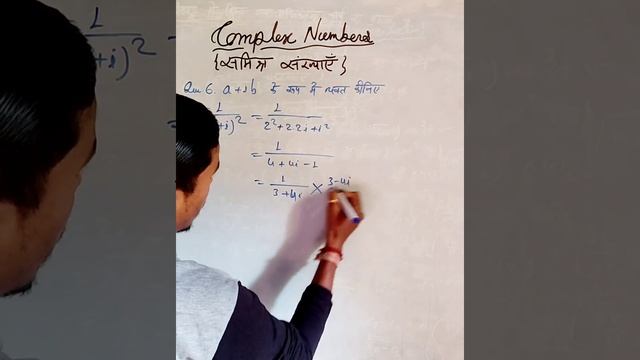 Complex Numbers
{सम्मिश्र संख्याएँ}
Que 6. a+ib के रूप में व्यक्त कीजिए
1/( +i)² = 1/(2²+2·2i+i²)
= 1/(4+4i-1)
= 1/(3+4i) × 3-4i